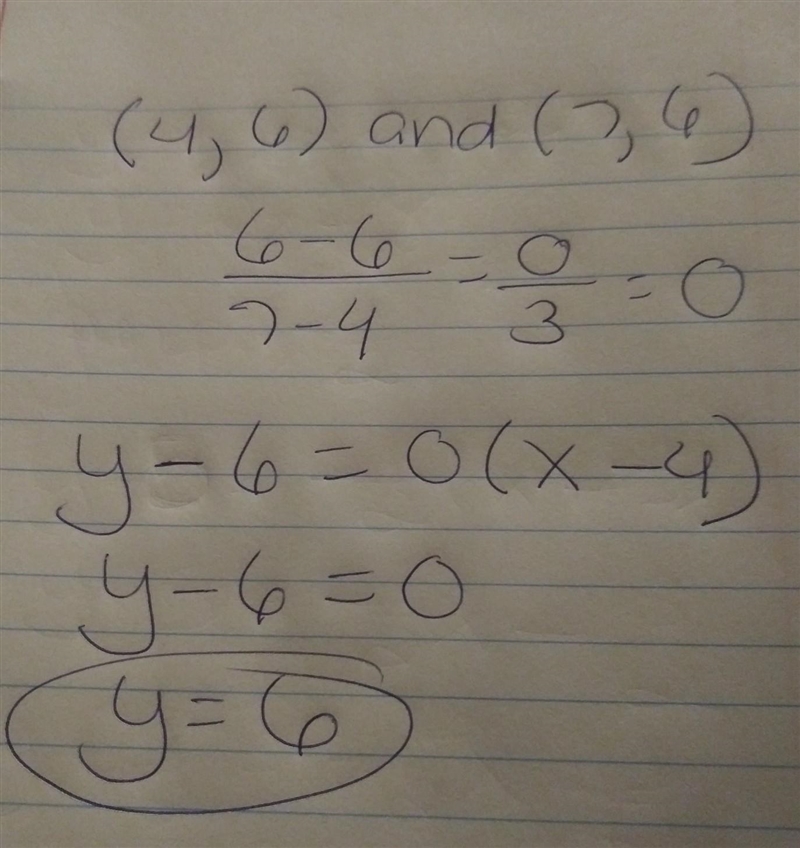 (4, 6) and (7, 6)
6 - 6 / 7 - 4 = 0 / 3 = 0
y - 6 = 0(x - 4)
y - 6 = 0
y = 6